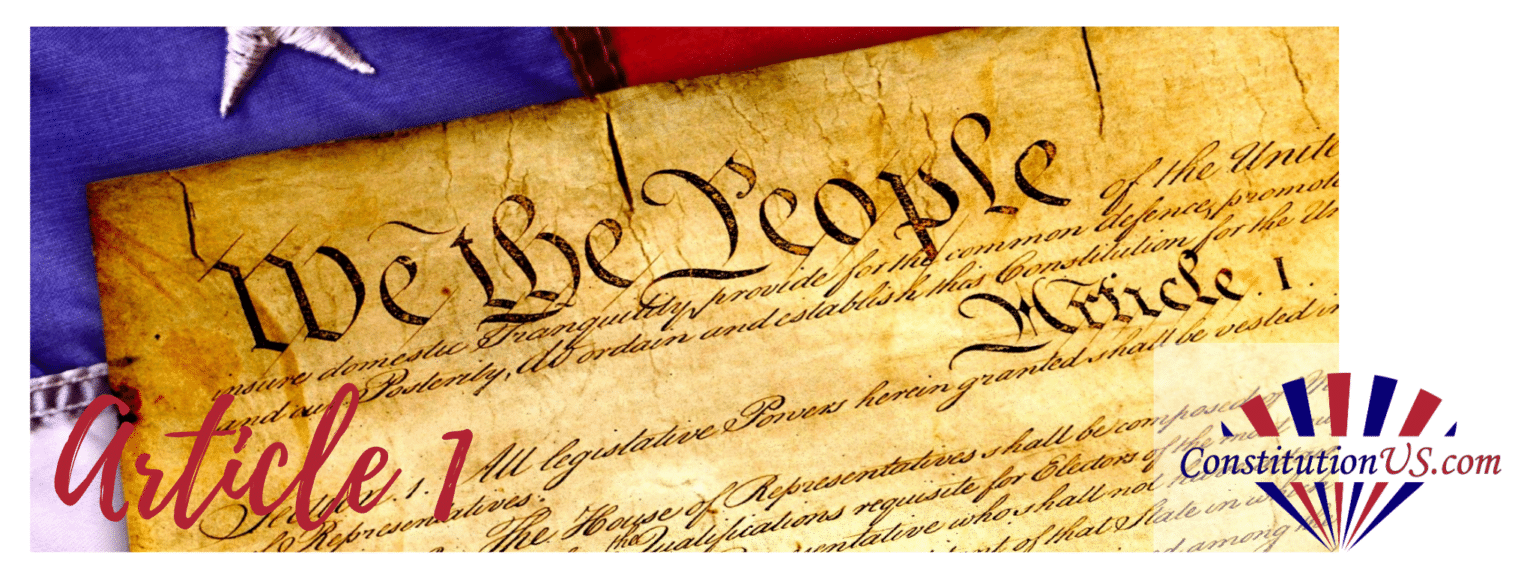 We the People of the Unite
insure domestic Tranquility, provide for the common defence, promote
and our Posterity, do ordain and establish this Constitution for the Un
Article. I.
Section. 1. All legislative Powers herein granted shall be vested in
of Representatives.
The House of Representatives shall be composed of
the Qualifications requisite for Electors of the most
entative who shall not
ent of that State in
among
Article 1
ConstitutionUS.com